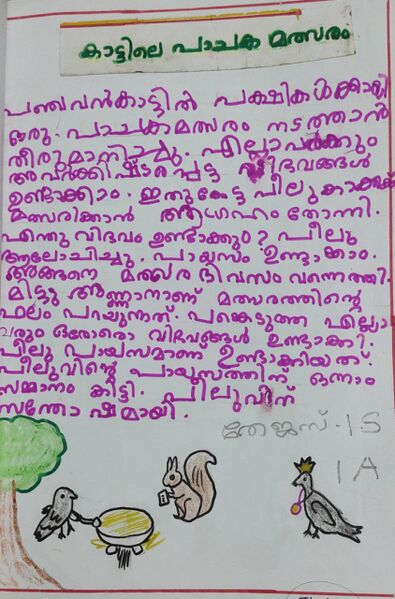 കാട്ടിലെ പാചക മത്സരം
പഞ്ചവൻകാട്ടിൽ പക്ഷികൾക്കായി
ഒരു പാചകമത്സരം നടത്താൻ
തീരുമാനിച്ചു. എല്ലാവർക്കും
അവർക്കിഷ്ടപ്പെട്ട വിഭവങ്ങൾ
ഉണ്ടാക്കാം. ഇതുകേട്ട പീലു കാക്കക്ക്
മത്സരിക്കാൻ ആഗ്രഹം തോന്നി.
എന്തു വിഭവം ഉണ്ടാക്കും? പീലു
ആലോചിച്ചു. പായസം ഉണ്ടാക്കാം.
അങ്ങനെ മത്സര ദിവസം വന്നെത്തി.
മിട്ടു അണ്ണാനാണ് മത്സരത്തിന്റെ
ഫലം പറയുന്നത്. പങ്കെടുത്ത എല്ലാ
വരും ഒരോരൊ വിഭവങ്ങൾ ഉണ്ടാക്കി.
പീലു പായസമാണ് ഉണ്ടാക്കിയത്.
പീലുവിന്റെ പായസത്തിന് ഒന്നാം
സമ്മാനം കിട്ടി. പീലുവിന്
സന്തോഷമായി.
തേജസ്. I S
I A